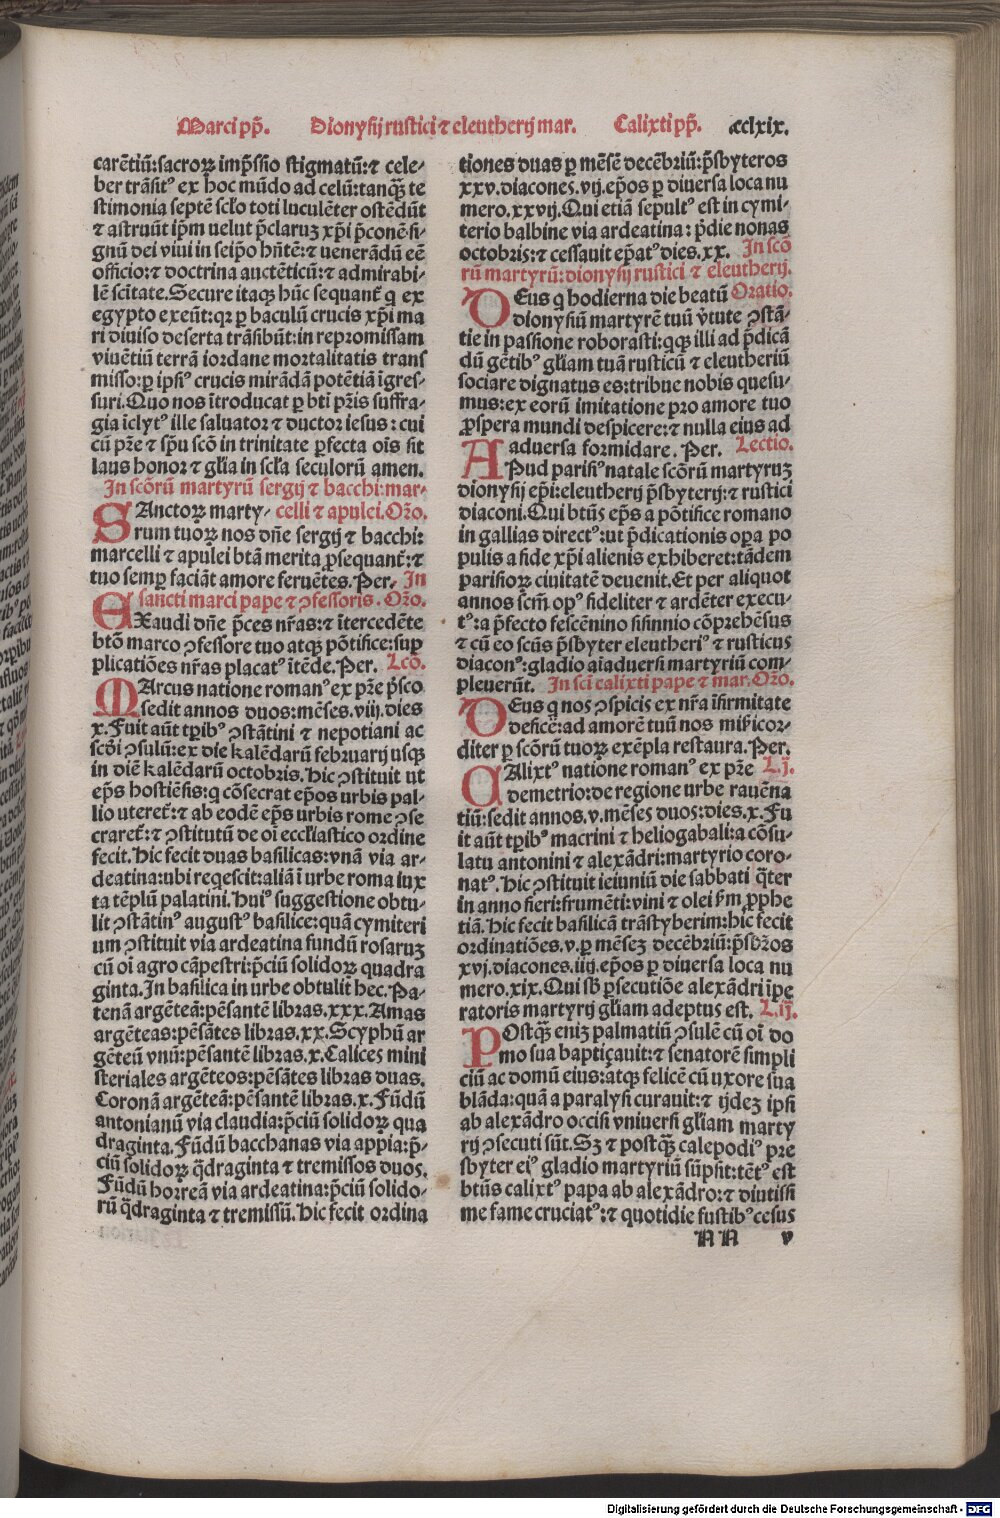 Marci pp̄. Dionysij rustici ⁊ eleutherij mar. Calixti pp̄. cclxix.
carētiū: sacroꝝ imp̄ssio stigmatū: ⁊ cele-
ber trāsitꝰ ex hoc mūdo ad celū: tanqꝫ te
stimonia septē scl̄o toti luculēter ostēdūt
⁊ astruūt ip̄m velut p̄clarus xp̄i p̄conē si-
gnū dei viui in seip̄o hn̄tē: ⁊ venerādū eē
officio: ⁊ doctrina auctēticū: ⁊ admirabi-
lē sc̄itate. Secure itaqꝫ hūc sequant᷑ q̄ ex
egypto exeūt: qꝛ ꝑ baculū crucis xp̄i ma
ri diuiso deserta trāsibūt: in repromissam
viuētiū terrā iordane mortalitatis trans
misso: ꝑ ipsiꝰ crucis mirādā potētiā īgres-
suri. Quo nos ītroducat ꝑ bt̄i pr̄is suffra-
gia īclytꝰ ille saluator ⁊ ductor iesus: cui
cū pr̄e ⁊ sp̄u sc̄o in trinitate ꝑfecta oīs sit
laus honor ⁊ gl̄ia in scl̄a seculorū amen.
In sc̄orū martyrū sergij ⁊ bacchi: mar-
SAnctoꝝ marty- celli ⁊ apulei. Oro.
rum tuoꝝ nos dn̄e sergij ⁊ bacchi:
marcelli ⁊ apulei btā merita ꝓsequant᷑: ⁊
tuo semꝑ faciāt amore feruētes. Per. In
sancti marci pape ⁊ ꝯfessoris. Oro.
EXaudi dn̄e p̄ces nr̄as: ⁊ ītercedēte
btō marco ꝯfessore tuo atqꝫ pōtifice: suꝑ
plicatiōes nr̄as placatꝰ ītēde. Per. Lcō.
MArcus natione romanꝰ ex pr̄e p̄sco
sedit annos duos: mēses. viij. dies
x. Fuit aūt tp̄ibꝰ ꝯstātini ⁊ nepotiani ac
scōi ꝯsulū: ex die kalēdarū februarij usqꝫ
in diē kalēdarū octobris. Hic ꝯstituit ut
ep̄s hostiēsis: q̄ cōsecrat ep̄os urbis pal-
lio uteret᷑: ⁊ ab eodē ep̄s urbis rome ꝯse
craret᷑: ⁊ ꝯstitutū de oī eccl̄iastico ordine
fecit. Hic fecit duas basilicas: vnā via ar-
deatina: ubi reqescit: aliā ī urbe roma iux
ta tēplū palatini. Huiꝰ suggestione obtu-
lit ꝯstātinꝰ augustꝰ basilice: quā cymiteri
um ꝯstituit via ardeatina fundū rosaruꝫ
cū oī agro cāpestri: p̄ciū solidoꝝ quadra
ginta. In basilica in urbe obtulit hec. Pa-
tenā argēteā: pēsantē libras. xxx. Amas
argēteas: pēsātes libras. xx. Scyphū ar
gēteū vnū: pēsantē libras. x. Calices mini
steriales argēteos: pēsātes libras duas.
Coronā argēteā: pēsantē libras. x. Fūdū
antonianū via claudia: p̄ciū solidoꝝ qua
draginta. Fūdū bacchanas via appia: p̄-
ciū solidoꝝ q̄draginta ⁊ tremissos duos.
Fūdū horreā via ardeatina: p̄ciū solido-
rū q̄draginta ⁊ tremissū. Hic fecit ordina
tiones duas ꝑ mēsē decēbriū: p̄sbyteros
xxv. diacones. vij. ep̄os ꝑ diuersa loca nu
mero. xxvij. Qui etiā sepultꝰ est in cymi-
terio balbine via ardeatina: p̄die nonas
octobris: ⁊ cessauit ep̄atꝰ dies. xx. In sco
rū martyrū: dionysij rustici ⁊ eleutherij.
DEus q̄ hodierna die beatū Oratio.
dionysiū martyrē tuū v̄tute ꝯstā-
tie in passione roborasti: qꝫ illi ad p̄dicā
dū gētibꝰ gl̄iam tuā rusticū ⁊ eleutheriū
sociare dignatus es: tribue nobis quesu-
mus: ex eorū imitatione pro amore tuo
ꝓspera mundi despicere: ⁊ nulla eius ad
aduersa formidare. Per. Lectio.
APud parisiꝰ natale scōrū martyruꝫ
dionysij ep̄i: eleutherij p̄sbyterij: ⁊ rustici
diaconi. Qui btūs ep̄s a pōtifice romano
in gallias directꝰ: ut p̄dicationis oꝑa po
pulis a fide xp̄i alienis exhiberet: tādem
parisioꝝ ciuitatē deuenit. Et per aliquot
annos scm̄ opꝰ fideliter ⁊ ardēter execu-
tꝰ: a p̄fecto fescēnino sisinnio cōprehēsus
⁊ cū eo scūs p̄sbyter eleutheriꝰ ⁊ rusticus
diaconꝰ: gladio aīaduersi martyriū com-
pleuerūt. In sci calixti pape ⁊ mar. Oro.
DEus q̄ nos ꝯspicis ex nr̄a īfirmitate
deficē: ad amorē tuū nos mīsicor-
diter ꝑ scōrū tuoꝝ exēpla restaura. Per.
CAlixtꝰ natione romanꝰ ex pr̄e L.j.
demetrio: de regione urbe rauēna
tiū: sedit annos. v. mēses duos: dies. x. Fu
it aūt tp̄ibꝰ macrini ⁊ heliogabali: a cōsu-
latu antonini ⁊ alexādri: martyrio coro-
natꝰ. Hic ꝯstituit ieiuniū die sabbati q̄ter
in anno fieri: frumēti: vini ⁊ olei sm̄ ꝓphe
tiā. Hic fecit basilicā trāstyberim: hic fecit
ordinatiōes. v. ꝑ mēseꝫ decēbriū: p̄sbr̄os
xvj. diacones. iiij. ep̄os ꝑ diuersa loca nu
mero. xix. Qui sb̄ ꝑsecutiōe alexādri īpe
ratoris martyrij gl̄iam adeptus est. L.ij.
POstqꝫ eniꝫ palmatiū ꝯsulē cū oī do
mo sua baptiçauit: ⁊ senatorē simpli
ciū ac domū eius: atqꝫ felicē cū uxore sua
blāda: quā a paralysi curauit: ⁊ ijdeꝫ ipsi
ab alexādro occisi vniuersi gl̄iam marty
rij ꝯsecuti sūt. Sꝫ ⁊ postqꝫ calepodiꝰ pre
sbyter eiꝰ gladio martyriū sūpsit: tētꝰ est
btūs calixtꝰ papa ab alexādro: ⁊ diutissi
me fame cruciatꝰ: ⁊ quotidie fustibꝰ cesus
NN v
Digitalisierung gefördert durch die Deutsche Forschungsgemeinschaft - DFG